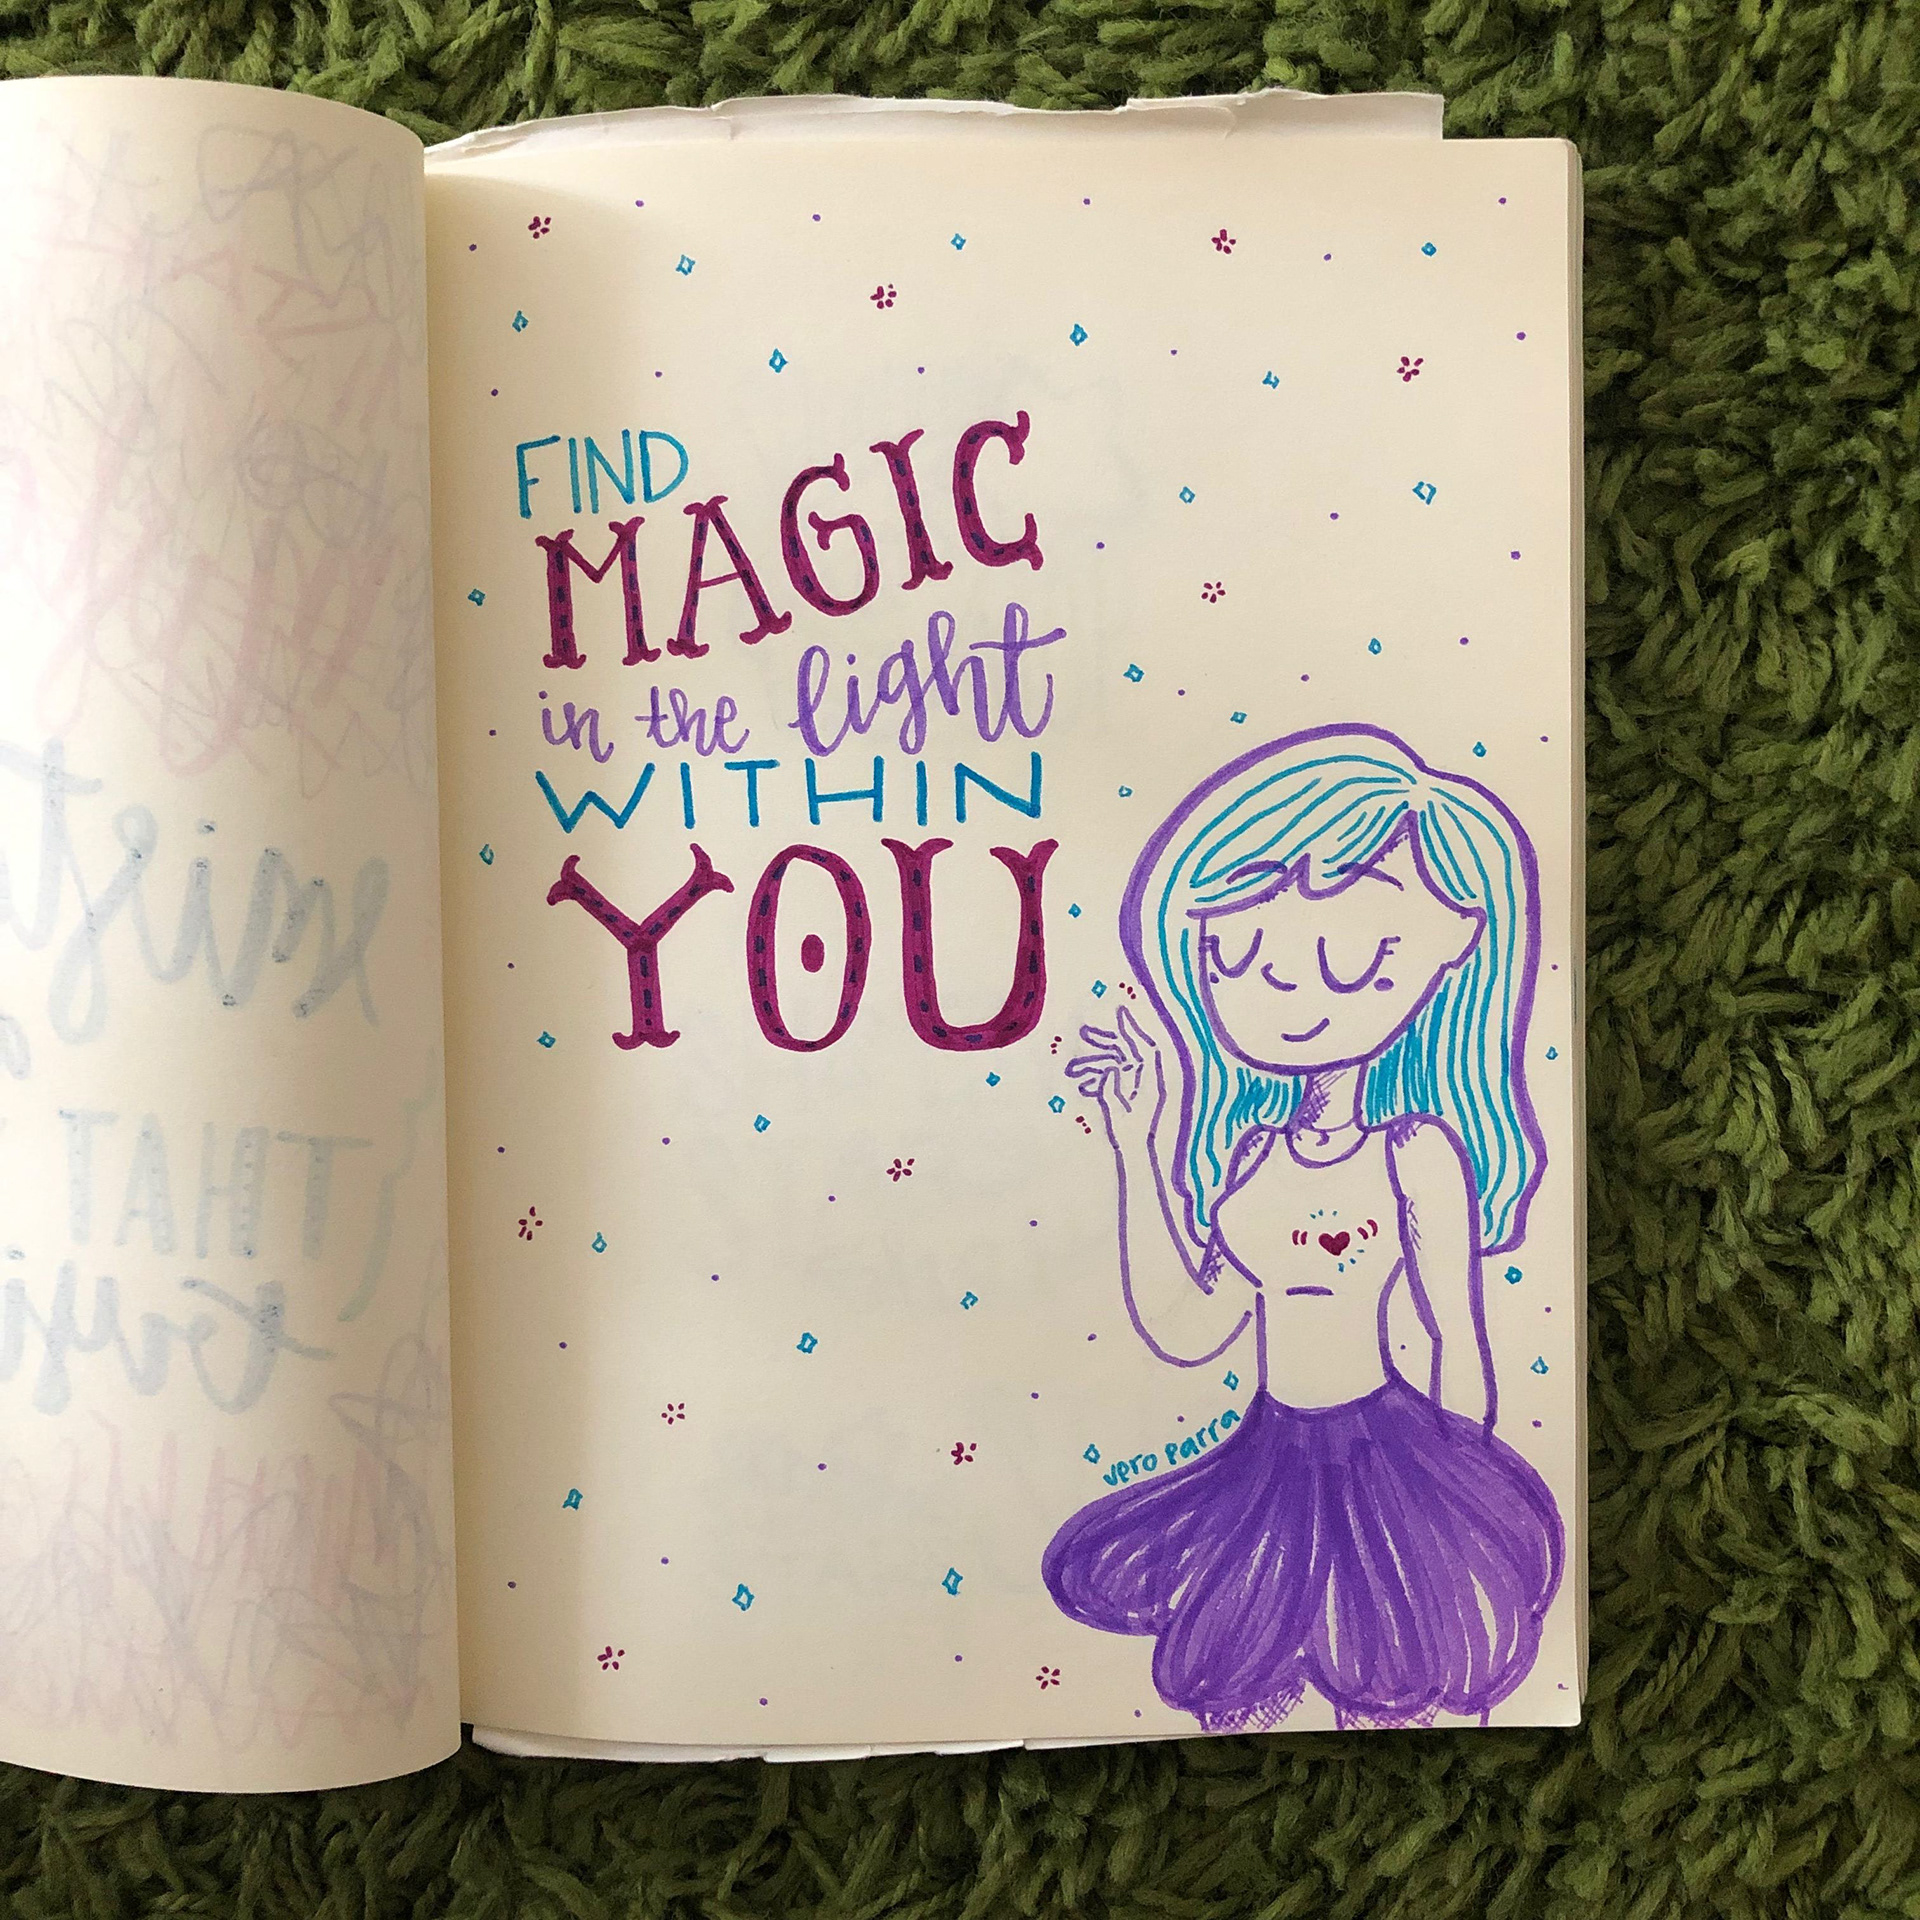 FIND
MAGIC
in the light
WITHIN
YOU
vero parra
THAT